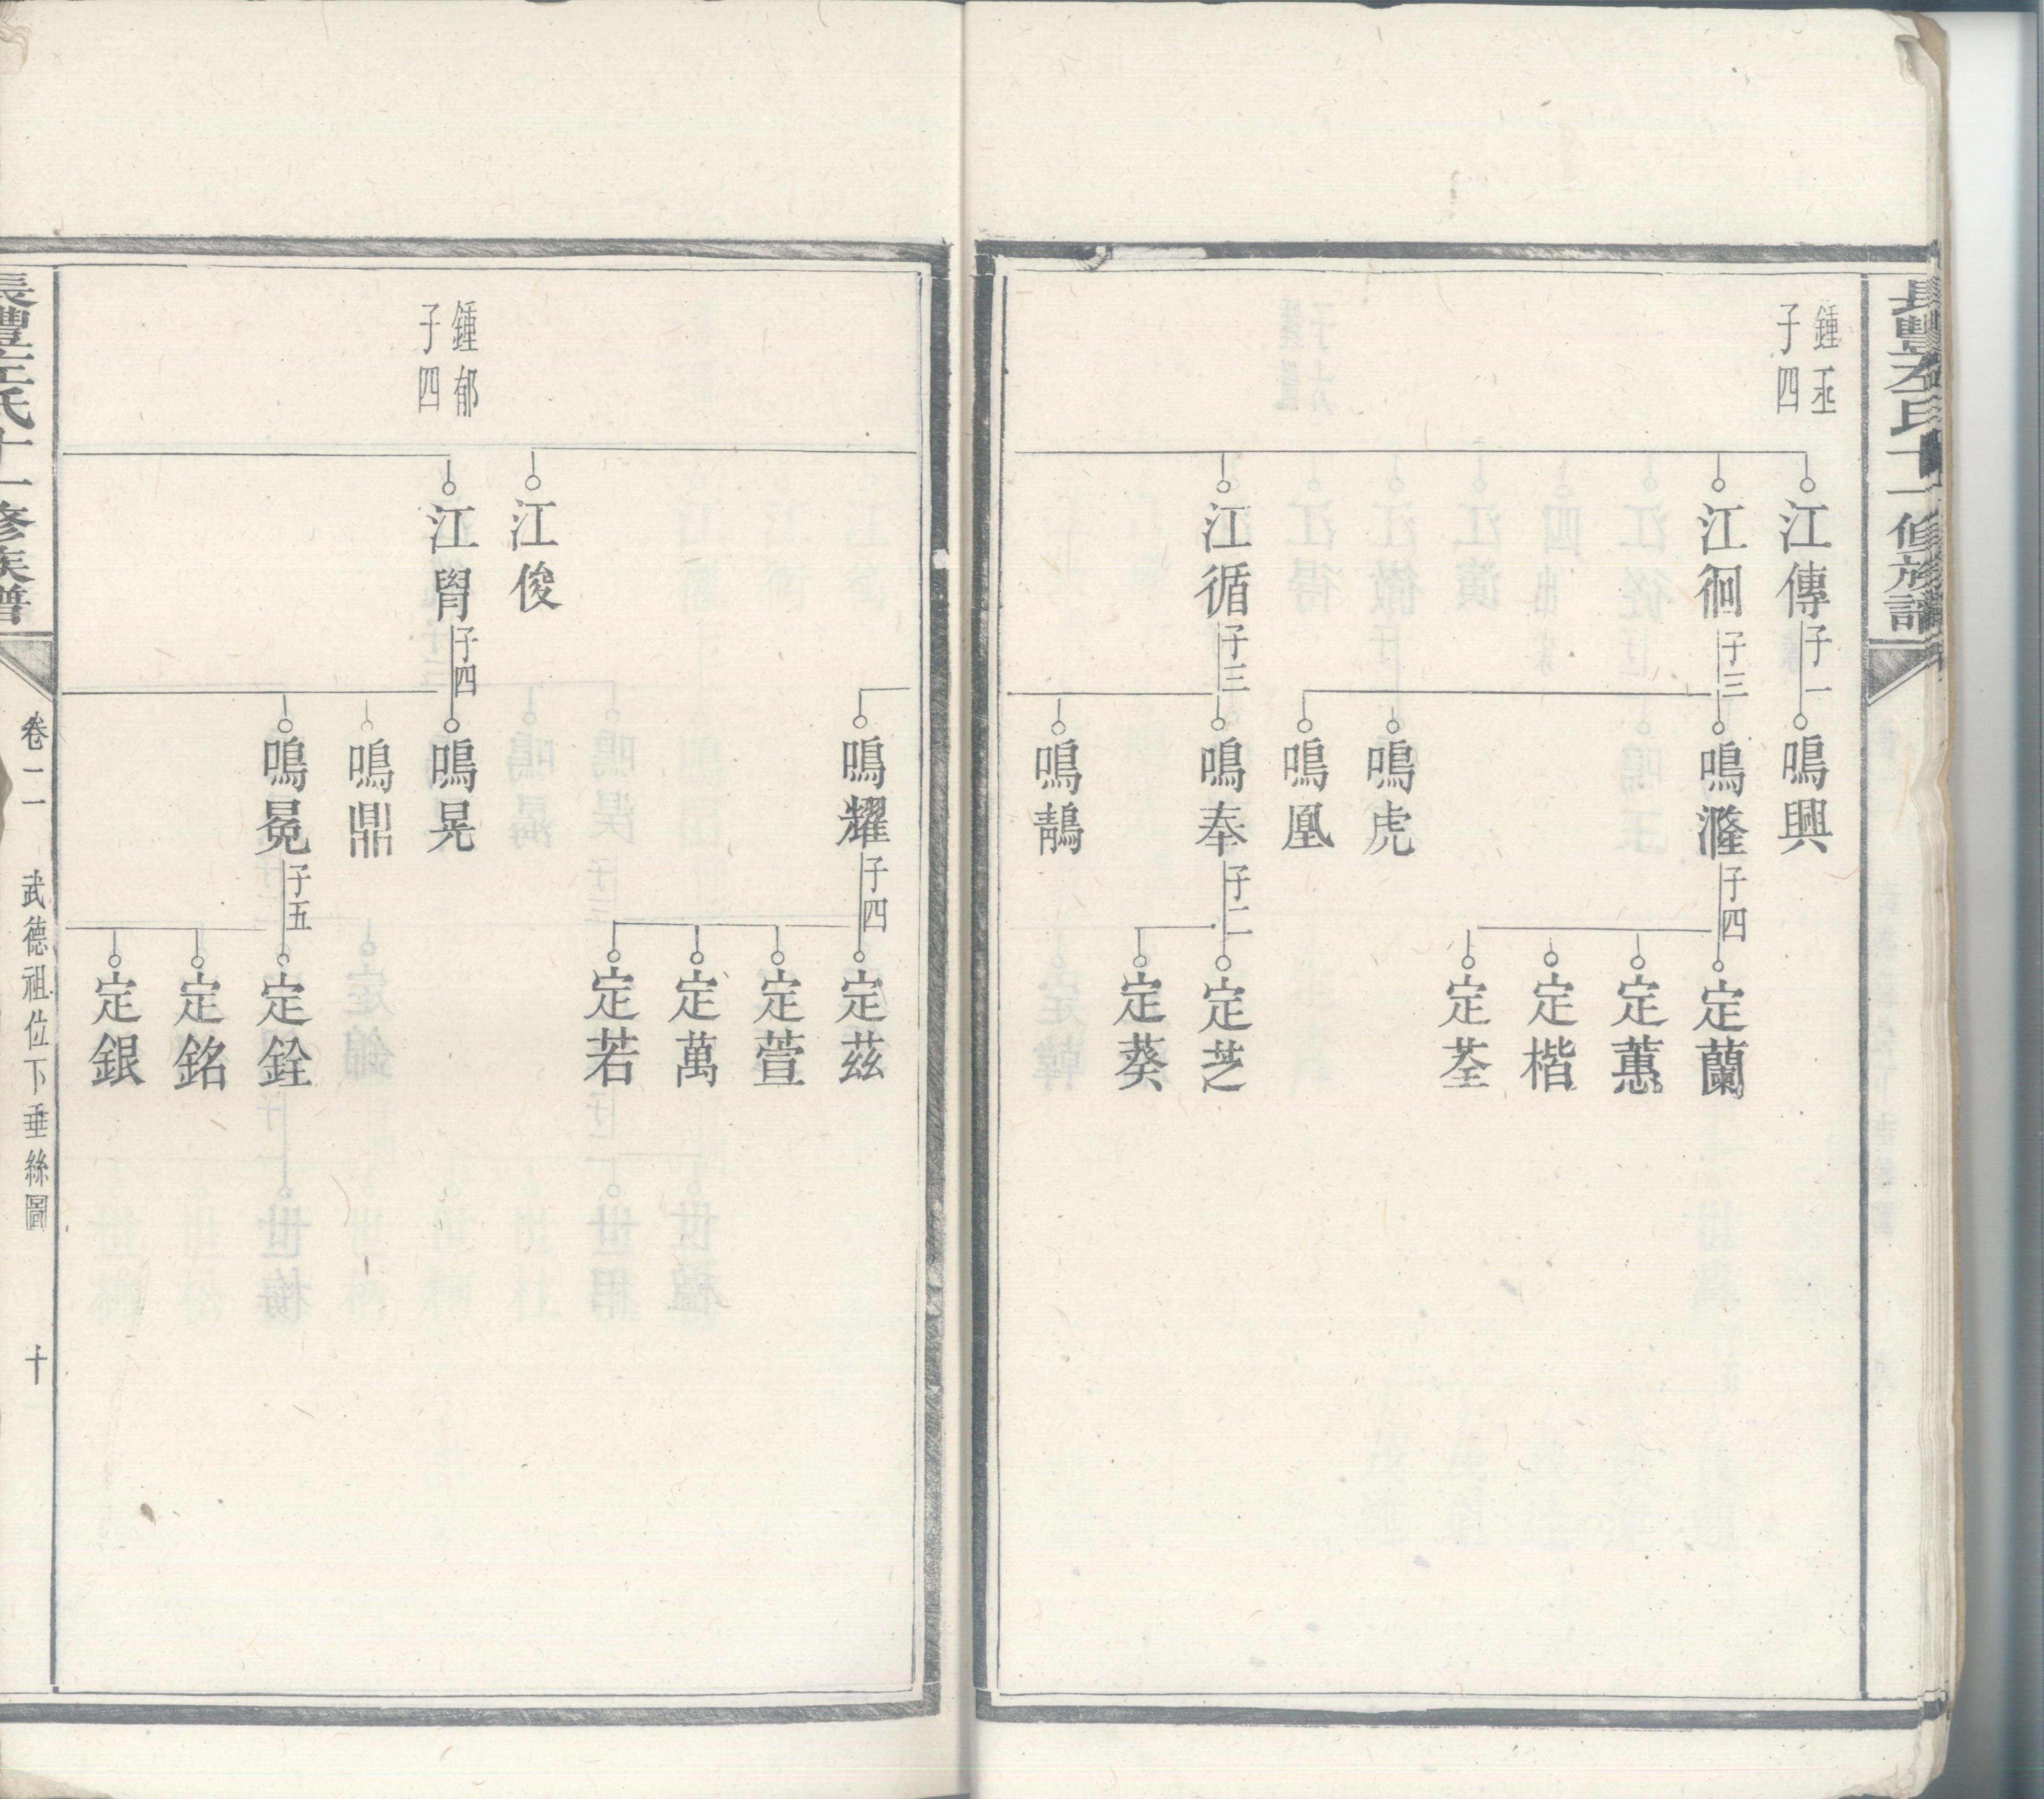 長豐左氏十一修族譜
鍾丞
子四
江傳 子一
江徊 子三
江循 子三
鳴興
鳴漋
鳴虎
鳴凰
鳴奉
鳴鶄
子四
子二
定蘭
定蕙
定楷
定荃
定芝
定葵
鍾郁
子四
江俊
江胷 子四
鳴耀 子四
鳴晃
鳴鼎
鳴冕 子五
定茲
定萱
定萬
定若
定銓
定銘
定銀
長豐左氏十一修族譜
卷二一 武德祖位下垂絲圖 十